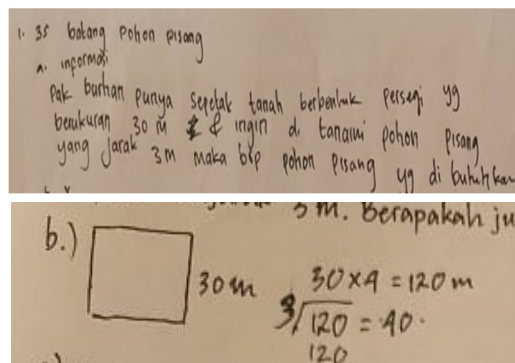 1. 35 batang pohon pisang
a. informasi
Pak burhan punya sepetak tanah berbentuk persegi yg
berukuran 30 m & ingin di tanami pohon pisang
yang jarak 3m maka brp pohon pisang yg di butuhkan
3m. Berapakah ju
b.)
30 m
30 x 4 = 120 m
3/120 = 40.
120